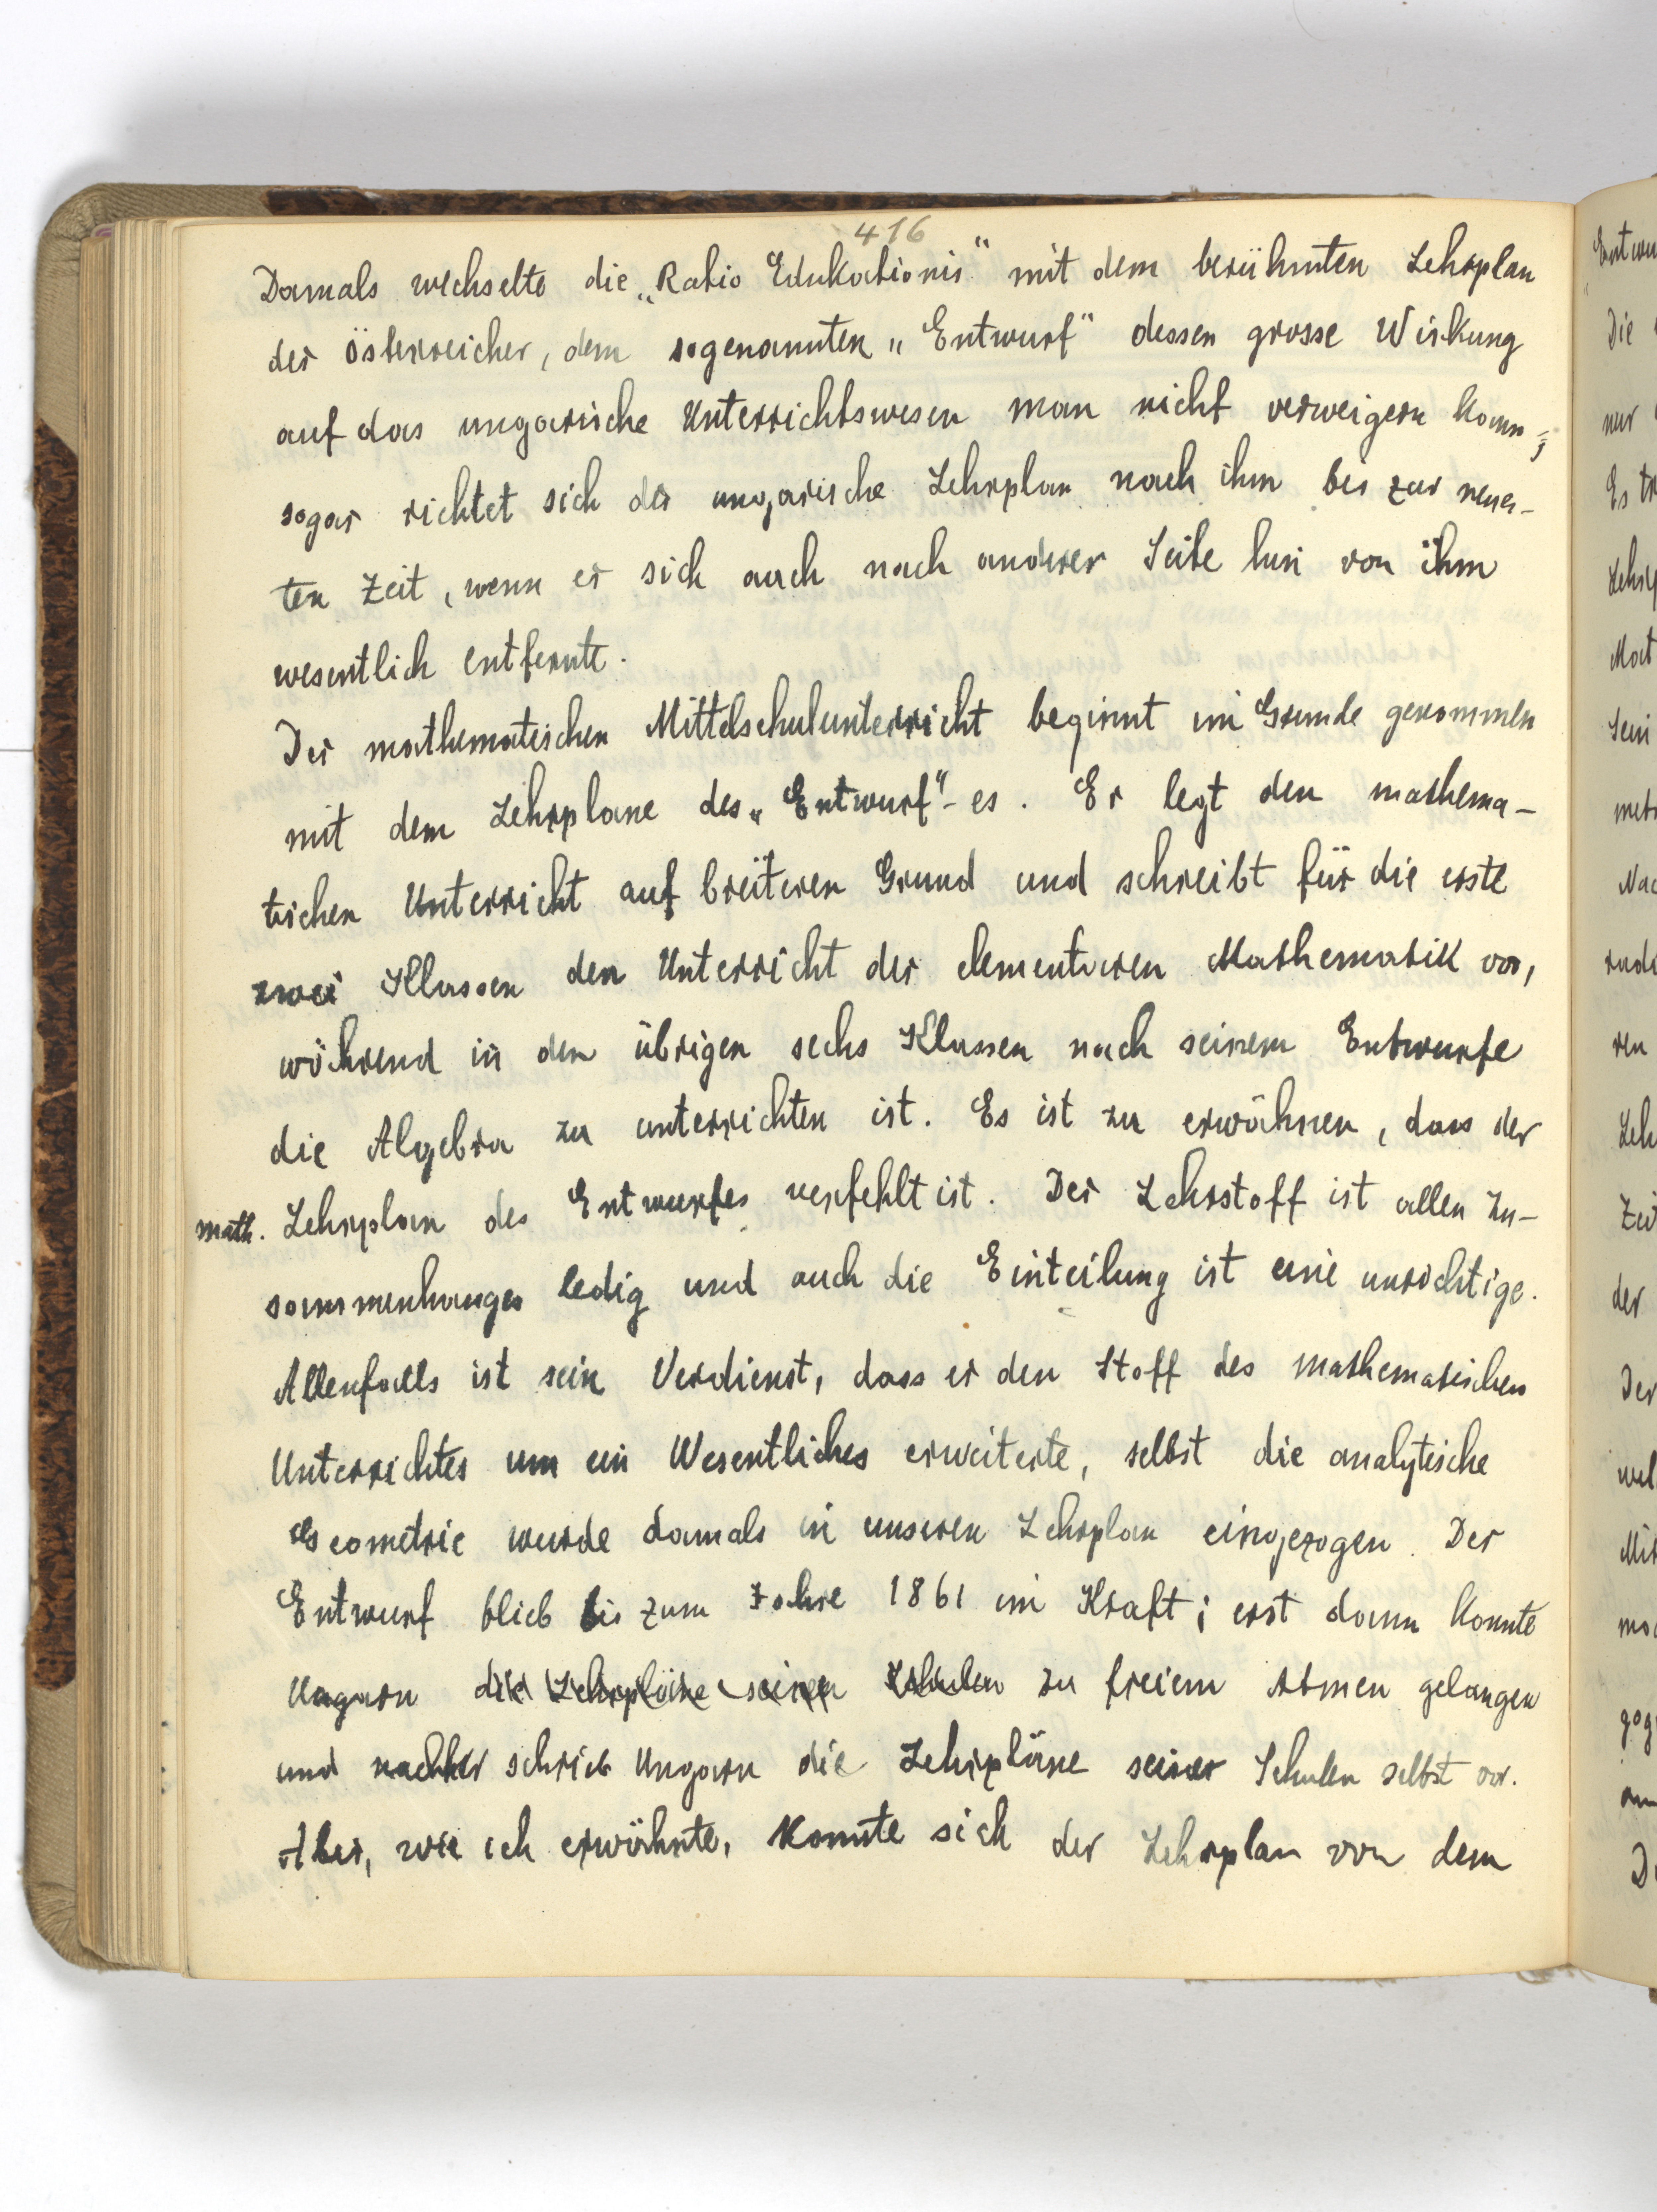 416
Damals wechselte die „Ratio Edukationis“ mit dem berühmten Lehrplan
der Österreicher, dem sogenannten „Entwurf“ dessen grosse Wirkung
auf das ungarische Unterrichtswesen man nicht verweigern kann;
sogar richtet sich der ungarische Lehrplan nach ihm bis zur neues-
ten Zeit, wenn er sich auch nach andrer Seite hin von ihm
wesentlich entfernte.
Der mathematischen Mittelschulunterricht beginnt im Grunde genommen
mit dem Lehrplane des „Entwurf“-es. Er legt den mathema-
tischen Unterricht auf breiteren Grund und schreibt für die erste
zwei Klassen den Unterricht der elementaren Mathematik vor,
während in den übrigen sechs Klassen nach seinem Entwurfe
die Algebra zu unterrichten ist. Es ist zu erwähnen, dass der
math. Lehrplan des Entwurfes verfehlt ist. Der Lehrstoff ist allen Zu-
sammenhanges ledig und auch die Einteilung ist eine unrichtige.
Allenfalls ist sein Verdienst, dass er den Stoff des mathematischen
Unterrichtes um ein Wesentliches erweiterte, selbst die analytische
Geometrie wurde damals in unseren Lehrplan eingezogen. Der
Entwurf blieb bis zum Jahre 1861 im Kraft; erst dann konnte
Ungarn die Lehrpläne seinen Schulen zu freiem Atmen gelangen
und nachher schrieb Ungarn die Lehrpläne seiner Schulen selbst vor.
Aber, wie ich erwähnte, konnte sich der Lehrplan von dem
Die
nur
Es
der
Der